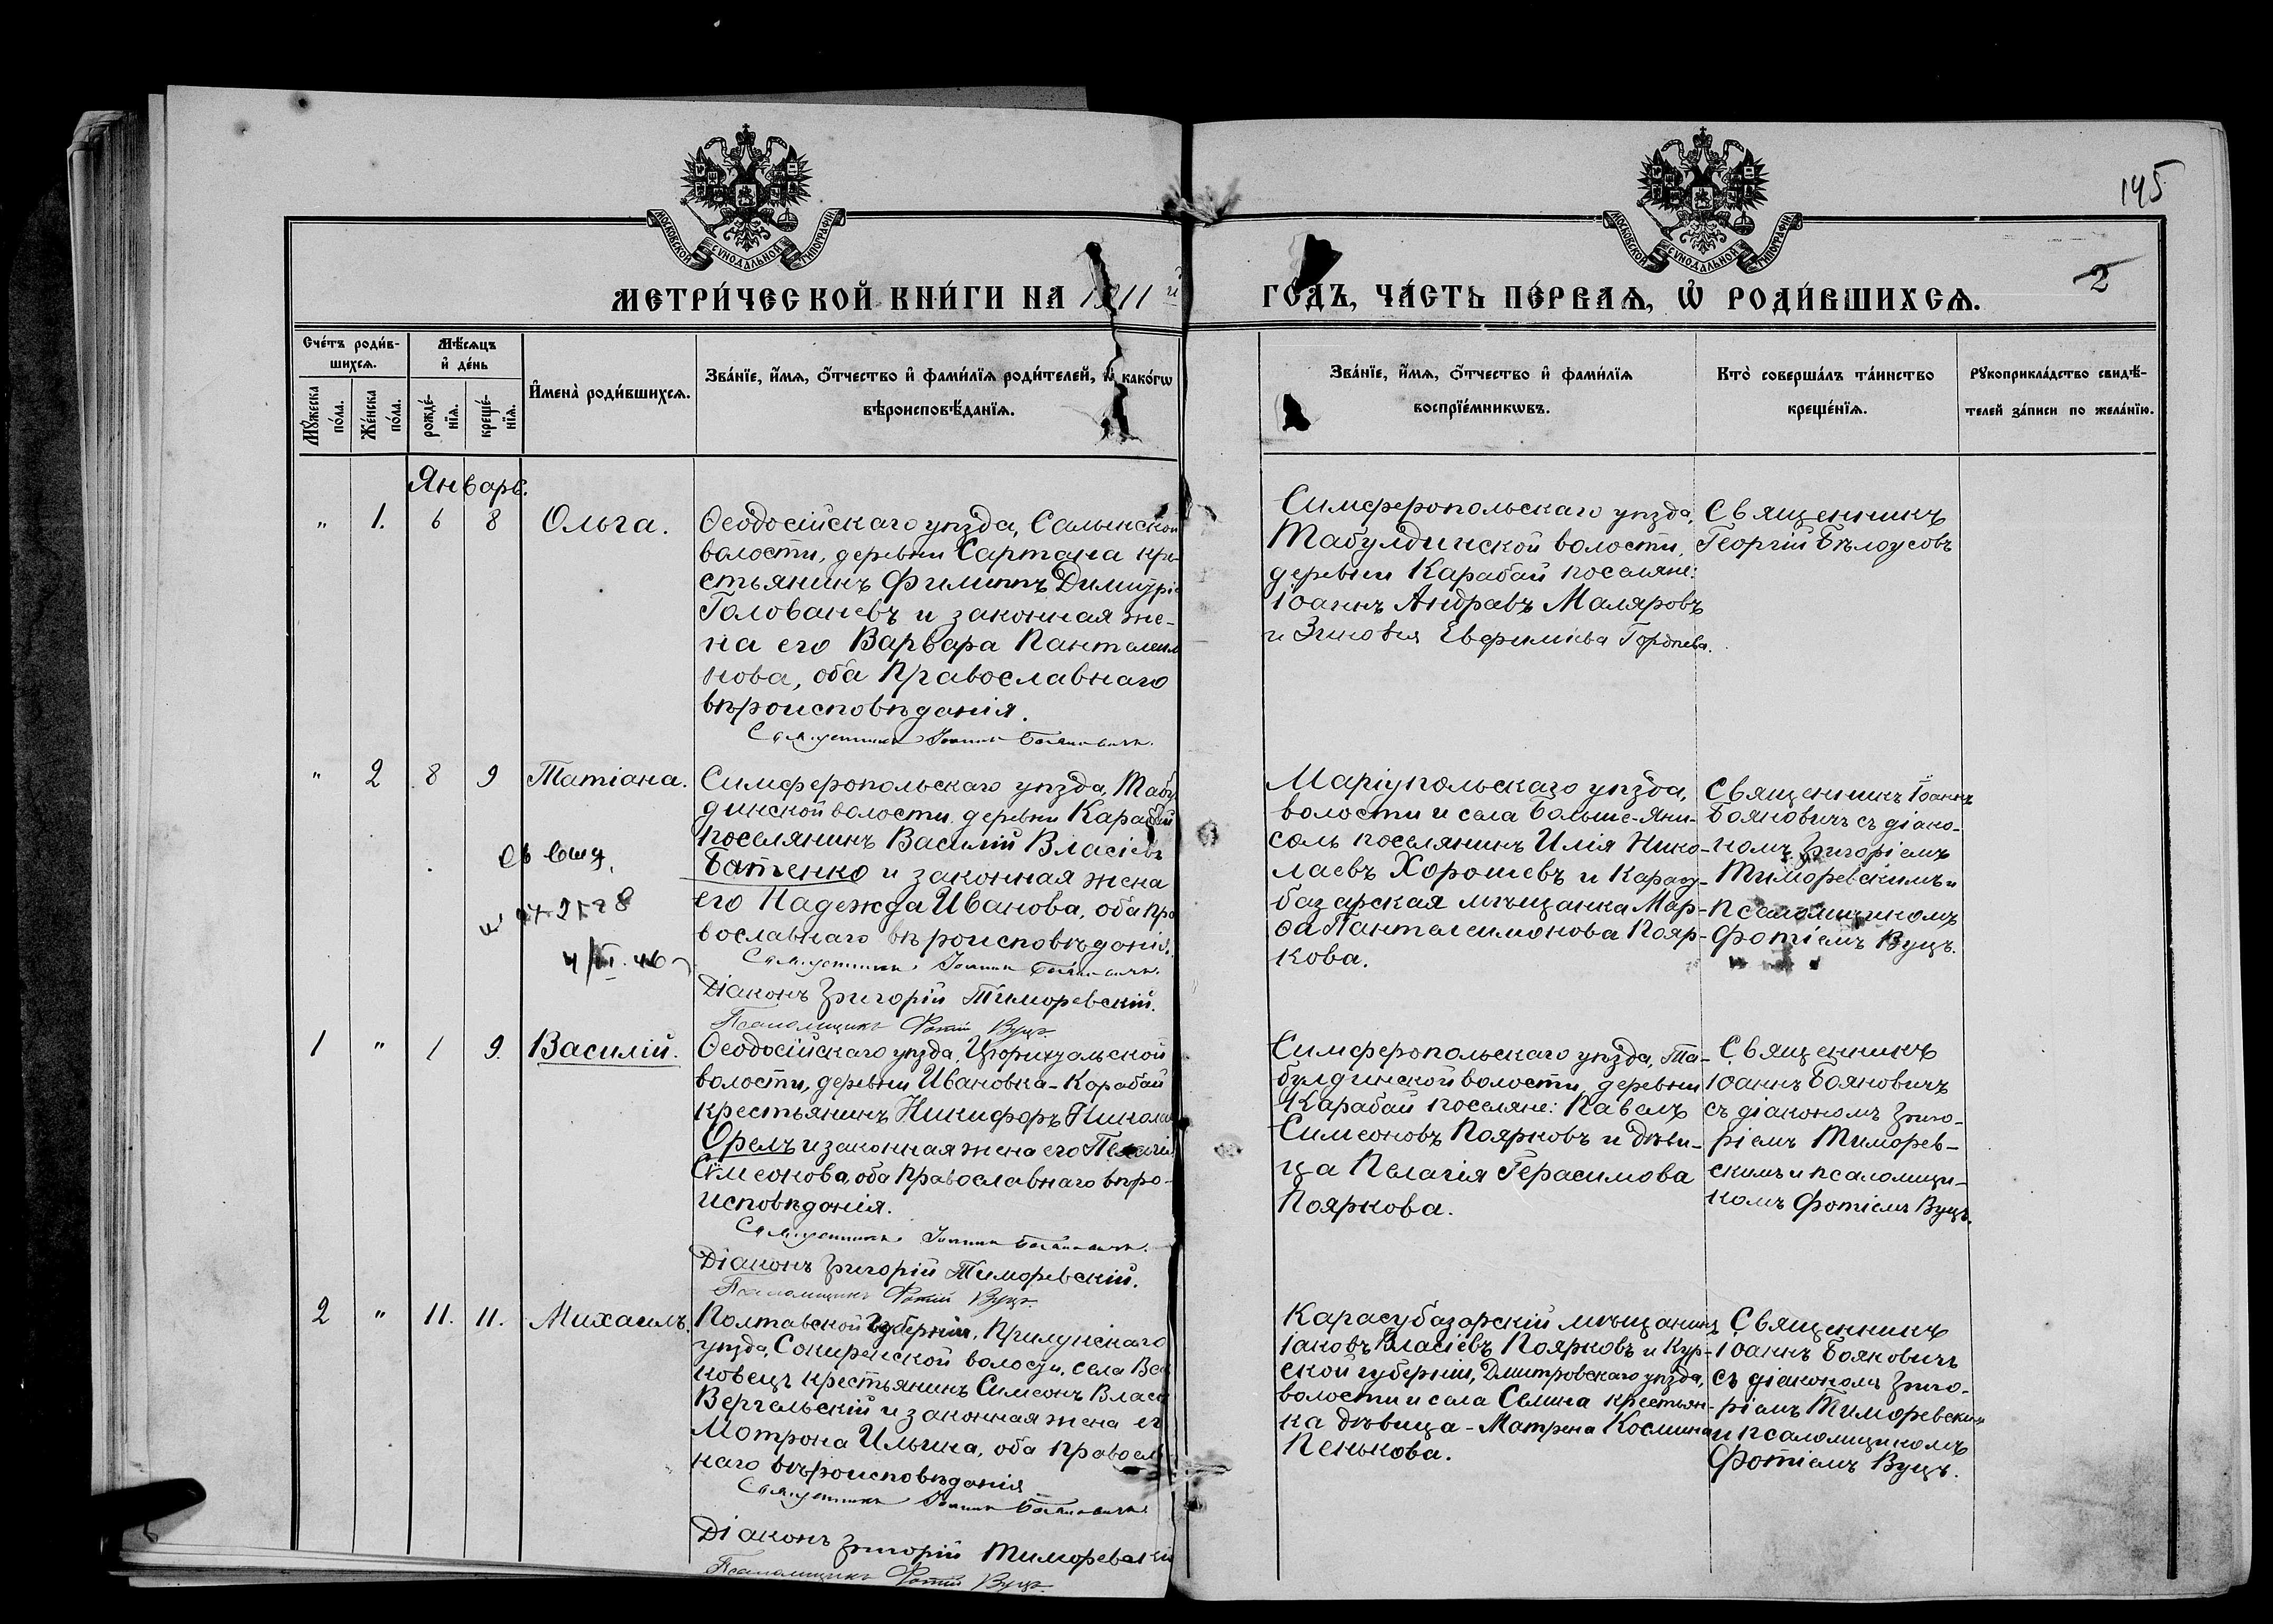 145
2
МОСКОВСКОЙ СѴНОДАЛЬНОЙ ТИПОГРАФІИ
МОСКОВСКОЙ СѴНОДАЛЬНОЙ ТИПОГРАФІИ
МЕТРИ́ЧЕСКОЙ КНИ́ГИ НА 1911й
ГО́ДЪ, ЧА́СТЬ ПЕ́РВАѦ, Ѡ҆ РОДИ́ВШИХСѦ.
Сче́тъ роди́в-
шихсѧ.
Мꙋ́жеска
по́ла.
Же́нска
по́ла.
Мѣ́сѧцъ
и҆ де́нь
рожде́-
нїѧ.
креще́-
нїѧ.
И҆мена̀ роди́вшихсѧ.
Зва́нїе, и҆́мѧ, ѻ҆́тчество и҆ фами́лїѧ роди́телей, и҆ како́гѡ
вѣроисповѣ́данїѧ.
Зва́нїе, и҆́мѧ, ѻ҆́тчество и҆ фами́лїѧ
воспрїе́мникѡвъ.
Кто̀ соверша́лъ та́инство
креще́нїѧ.
Рꙋкоприкла́дство свидѣ́-
телей за́писи по жела́нїю.
Январь.
" 1. 6 8 Ольга.
Ѳеодосійскаго уѣзда, Салынской
волости, деревни Сартана кре-
стьянинъ Филиппъ Димитріе
Голованевъ и законная же-
на его Варвара Пантелеим
нова, оба Православнаго
вѣроисповѣданія.
Священникъ Іоаннъ Бояновичъ.
Симферопольскаго уѣзда,
Табулдинской волости,
деревни Карабай поселяне:
Іоаннъ Андреевъ Маляровъ
и Зиновія Евфиміева
Священникъ
Георгій Бѣлоусовъ
" 2 8 9 Татіана.
Симферопольскаго уѣзда, Табу
динской волости деревни Карабай
поселянинъ Василій Власіевъ
Батенко и законная жена
его Надежда Ивановa, оба Пра
вославнаго вѣроисповѣданія.
Священникъ Іоаннъ Бояновичъ.
Діаконъ Григорій Тиморевскій.
Псаломщикъ Фотій Вуцъ.
4/III.46
Маріупольскаго уѣзда,
волости и села Больше-Яни-
соль поселянинъ Илія Нико-
лаевъ Хорошевъ и Карасу-
базарская мѣщанка Мар-
ѳа Пантелеимонова Пояр-
кова.
Священникъ Іоаннъ
Бояновичъ съ діако-
номъ Григоріемъ
Тиморевскимъ и
псаломщикомъ
Фотіемъ Вуцъ.
1 " 1 9. Василій.
Ѳеодосійскаго уѣзда, Цюрихтальской
волости, деревни Ивановка-Карабай
крестьянинъ Никифоръ Никола
Орелъ и законная жена его Пелагія
Симеонова, оба Православнаго вѣро-
исповѣданія.
Священникъ Іоаннъ Бояновичъ.
Діаконъ Григорій Тиморевскій.
Псаломщикъ Фотій Вуцъ.
Симферопольскаго уѣзда, Та-
булдинской волости, деревни
Карабай поселяне: Павелъ
Симеоновъ Поярковъ и дѣви-
ца Пелагія Герасимова
Пояркова.
Священникъ
Іоаннъ Бояновичъ
съ діакономъ Григо-
ріемъ Тиморев-
скимъ и псаломщи-
комъ Фотіемъ Вуцъ.
2 " 11. 11. Михаилъ.
Полтавской Губерніи, Прилукскаго
уѣзда, Сокиренской волости, села
крестьянинъ Симеонъ Власі
Вергельскій и законная жена ег
Мотрона Ильина, оба Правосл
наго вѣроисповѣданія
Священникъ Іоаннъ Бояновичъ.
Діаконъ Григорій Тиморевскій
Псаломщикъ Фотій Вуцъ.
Карасубазарскій мѣщанинъ
Іаковъ Власіевъ Поярковъ и Кур-
ской губерніи, Дмитровскаго уѣзда,
волости и села Селина крестьян-
ка дѣвица - Матрена Космина
Пенькова.
Священникъ
Іоаннъ Бояновичъ
съ діакономъ Григо-
ріемъ Тиморевским
и псаломщикомъ
Фотіемъ Вуцъ.